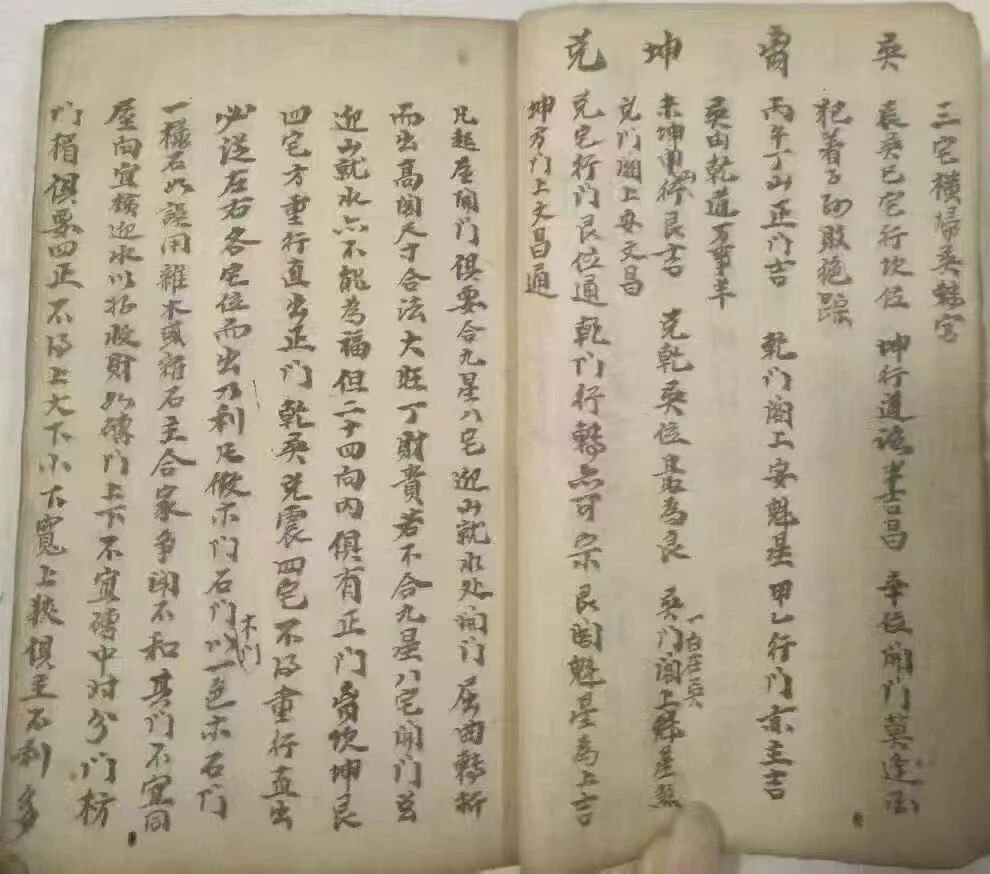 三宅横掃巽魁宮
巽 辰巽巳宅行坎位 坤行道路半吉昌 辛位開門莫逢凶
犯着子孫敗绝踪
离 丙午丁山正门吉 乾门阁上安魁星 甲乙行门亦主吉
巽由乾道万事羊
坤 未坤申山行艮吉 兑乾巽位甚為良 巽门阁上绿星照
一白在巽
兑门阁上安文昌
兑 兑宅行门艮位通 乾门行轉亦可宗 艮阁魁星為上吉
坤方门上文昌通
凡起屋開门俱要合九星八宅迎山就水处開门屈曲轉折
而出高闊尺寸合法大旺丁財貴若不合九星八宅開门玄
迎山就水亦不能為福但二十四向内俱有正门离坎坤艮
四宅方重行直出正门乾巽兑震四宅不得重行直出
必送左右各宅位而出乃利凡做木门石门以一色木石门
木门
一樣石如誤用雜木或雜石主合家争闹不和其门不宜同
屋向宜横迎水以招收財如磚门上下不宜磚中对分门枋
门楣俱要四正不得上大下小下寬上狭俱主不利 多